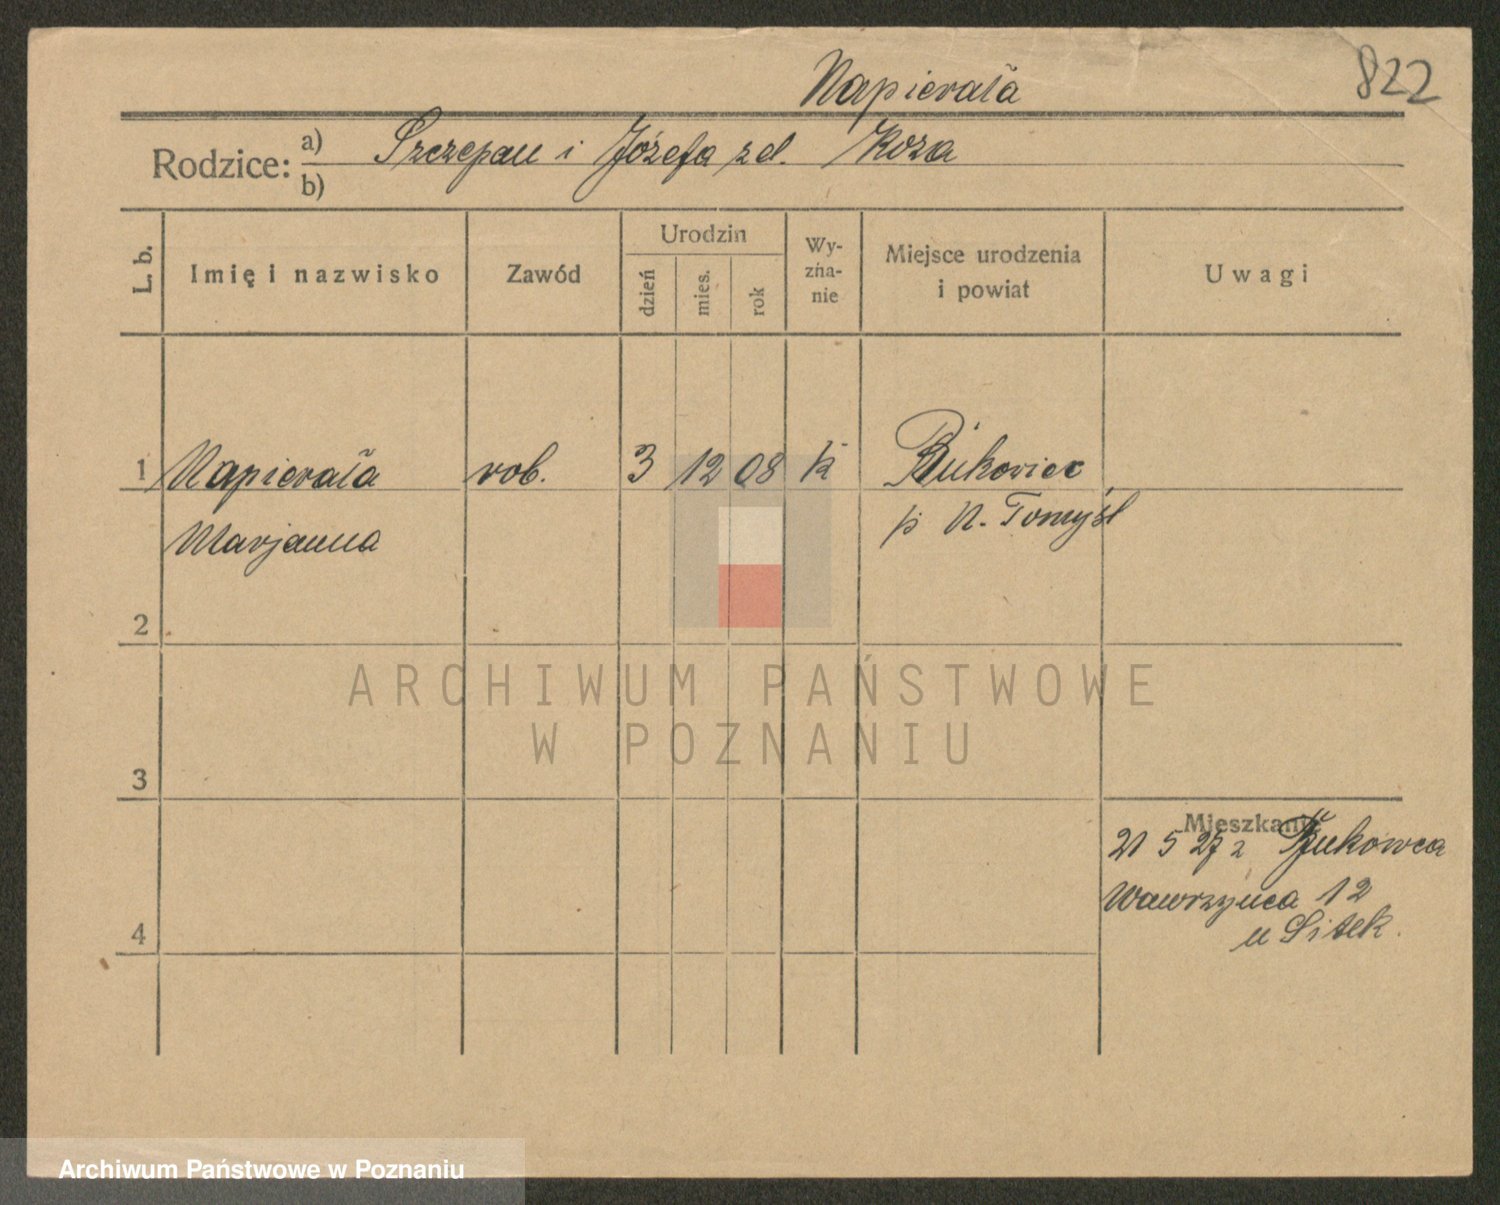 Napierała
822
Rodzice: a) Szczepan i Józefa zd. Koza
b)
L. b. Imię i nazwisko Zawód Urodzin dzień mies. rok Wy-zna-nie Miejsce urodzenia i powiat Uwagi
1 Napierała rob. 3 12 08 k Bukowiec
Marjanna p N. Tomyśl
2
ARCHIWUM PAŃSTWOWE
W POZNANIU
3
Mieszkanie
21 5 27 z Bukowca
Wawrzyńca 12
u Sitek.
4
Archiwum Państwowe w Poznaniu